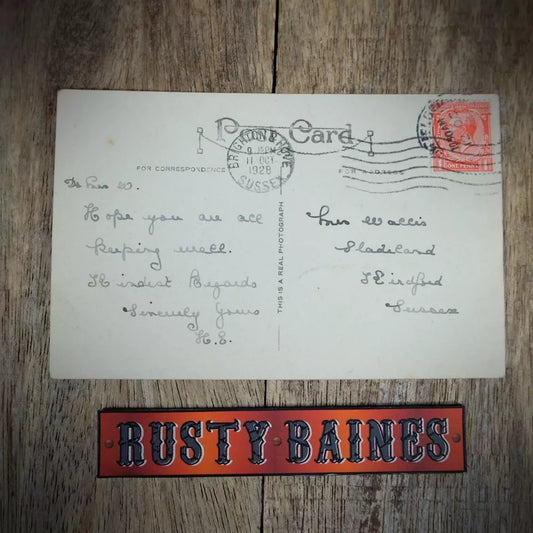 Post Card
BRIGHTON & HOVE
9.15PM
11 OCT
1928
SUSSEX
ONE PENNY
FOR CORRESPONDENCE
FOR ADDRESS
Dr Mrs W.
Hope you are all
keeping well.
Kindest Regards
Sincerely Yours
H.E.
THIS IS A REAL PHOTOGRAPH
Mrs Wallis
Sladeland
Kirdford
Sussex
RUSTY BAINES